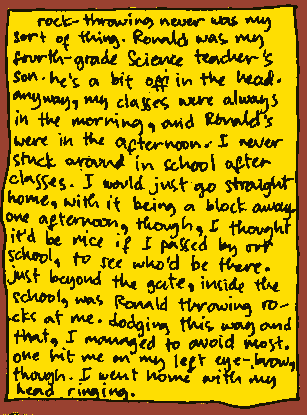 rock-throwing never was my
sort of thing. Ronald was my
fourth-grade Science teacher's
son. he's a bit off in the head.
anyway, my classes were always
in the morning, and Ronald's
were in the afternoon. I never
stuck around in school after
classes. I would just go straight
home, with it being a block away.
one afternoon, though, I thought
it'd be nice if I passed by our
school, to see who'd be there.
just beyond the gate, inside the
school, was Ronald throwing ro-
cks at me. dodging this way and
that, I managed to avoid most.
one hit me on my left eye-brow,
though. I went home with my
head ringing.